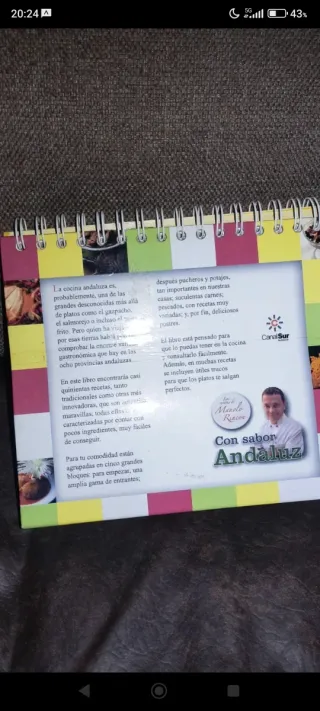 20:24
5G
43%
La cocina andaluza es,
probablemente, una de las
grandes desconocidas más allá
de platos como el gazpacho,
el salmorejo o incluso el
frito. Pero quien ha
por esas tierras habrá
comprobar la enorme
gastronómica que hay en las
ocho provincias andaluzas.
En este libro encontrarás casi
quinientas recetas, tanto
tradicionales como otras más
innovadoras, que son
maravillas, todas ellas
caracterizadas por contar con
pocos ingredientes, muy fáciles
de conseguir.
Para tu comodidad están
agrupadas en cinco grandes
bloques: para empezar, una
amplia gama de entrantes;
después pucheros y potajes,
tan importantes en nuestras
casas; suculentas carnes;
pescados, con recetas muy
variadas; y, por fin, deliciosos
postres.
El libro está pensado para
que lo puedas tener en la cocina
y consultarlo fácilmente.
Además, en muchas recetas
se incluyen útiles trucos
para que los platos te salgan
perfectos.
CanalSur
Manolo
Con sabor
Andaluz